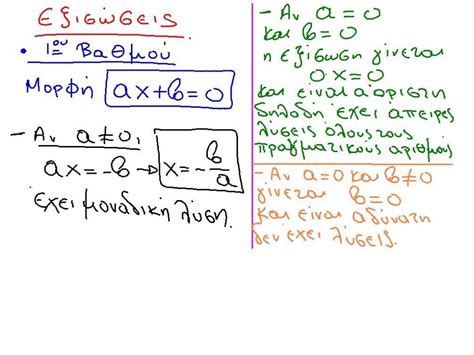 Εξισώσεις
• 1ου Βαθμού
Μορφή ax+b=0
- Αν a≠0,
ax=-b → x=-b/a
έχει μοναδική λύση.
- Αν a=0
και b=0
η εξίσωση γίνεται
0x=0
και είναι αόριστη
δηλαδή έχει άπειρες
λύσεις όλους τους
πραγματικούς αριθμούς
- Αν a=0 και b≠0
γίνεται b=0
και είναι αδύνατη
δεν έχει λύσεις.